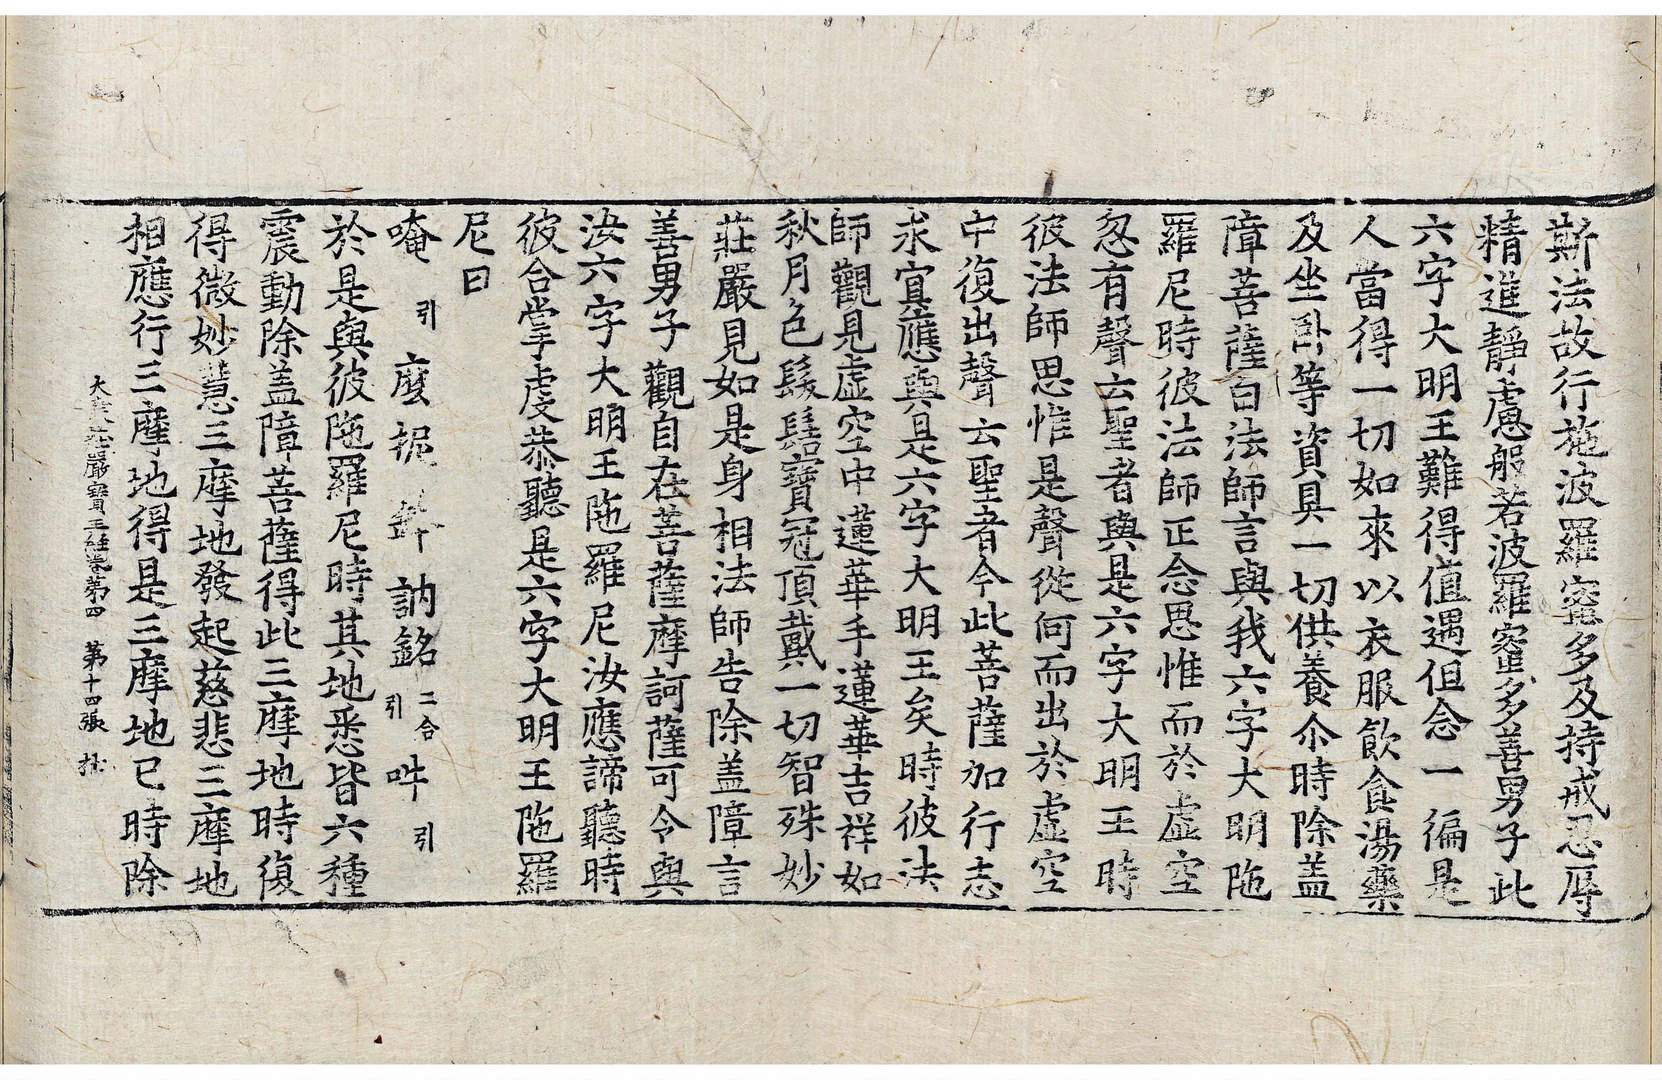 斯法故行施波羅蜜多及持戒忍辱
精進靜慮般若波羅蜜多善男子此
六字大明王難得值遇但念一徧是
人當得一切如來以衣服飲食湯藥
及坐卧等資具一切供養尒時除盖
障菩薩白法師言與我六字大明陁
羅尼時彼法師正念思惟而於虛空
忽有聲云聖者與是六字大明王時
彼法師思惟是聲從何而出於虛空
中復出聲云聖者今此菩薩加行志
求冥應與是六字大明王矣時彼法
師觀見虛空中蓮華手蓮華吉祥如
秋月色髮髻寶冠頂戴一切智殊妙
莊嚴見如是身相法師告除盖障言
善男子觀自在菩薩摩訶薩可令與
汝六字大明王陁羅尼汝應諦聽時
彼合掌虔恭聽是六字大明王陁羅
尼曰
唵引麼抳鉢訥銘二合引吽引
於是與彼陁羅尼時其地悉皆六種
震動除盖障菩薩得此三摩地時復
得微妙慧三摩地發起慈悲三摩地
相應行三摩地得是三摩地已時除
大乘莊嚴寶王經卷第四 第十四張